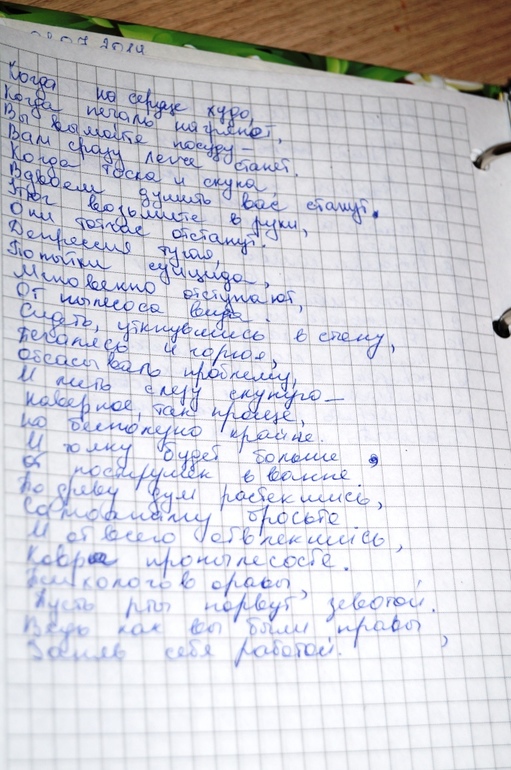 2012
Когда на сердце худо,
Когда печаль нагрянет,
Вы вымойте посуду —
Вам сразу легче станет.
Когда тоска и скука,
Вдвоем душить вас станут,
Утюг возьмите в руки,
Они тотчас отстанут.
Депрессия тугая,
Попытки суицида,
Мгновенно отступают,
От пылесоса вида.
Сидеть, уткнувшись в стену,
Терзаясь и горюя,
обсасывать проблему,
И лить слезу скупую —
наверное, так проще,
но бесполезно крайне.
И толку будет больше,
от постирушек в ванне.
По древу дум растекшись,
Самоанализ бросьте
И от всего отвлекшись,
Ковры пропылесосьте.
Психологов оравы,
Пусть рты порвут зевотой.
Ведь как вы были правы,
Заняв себя работой.